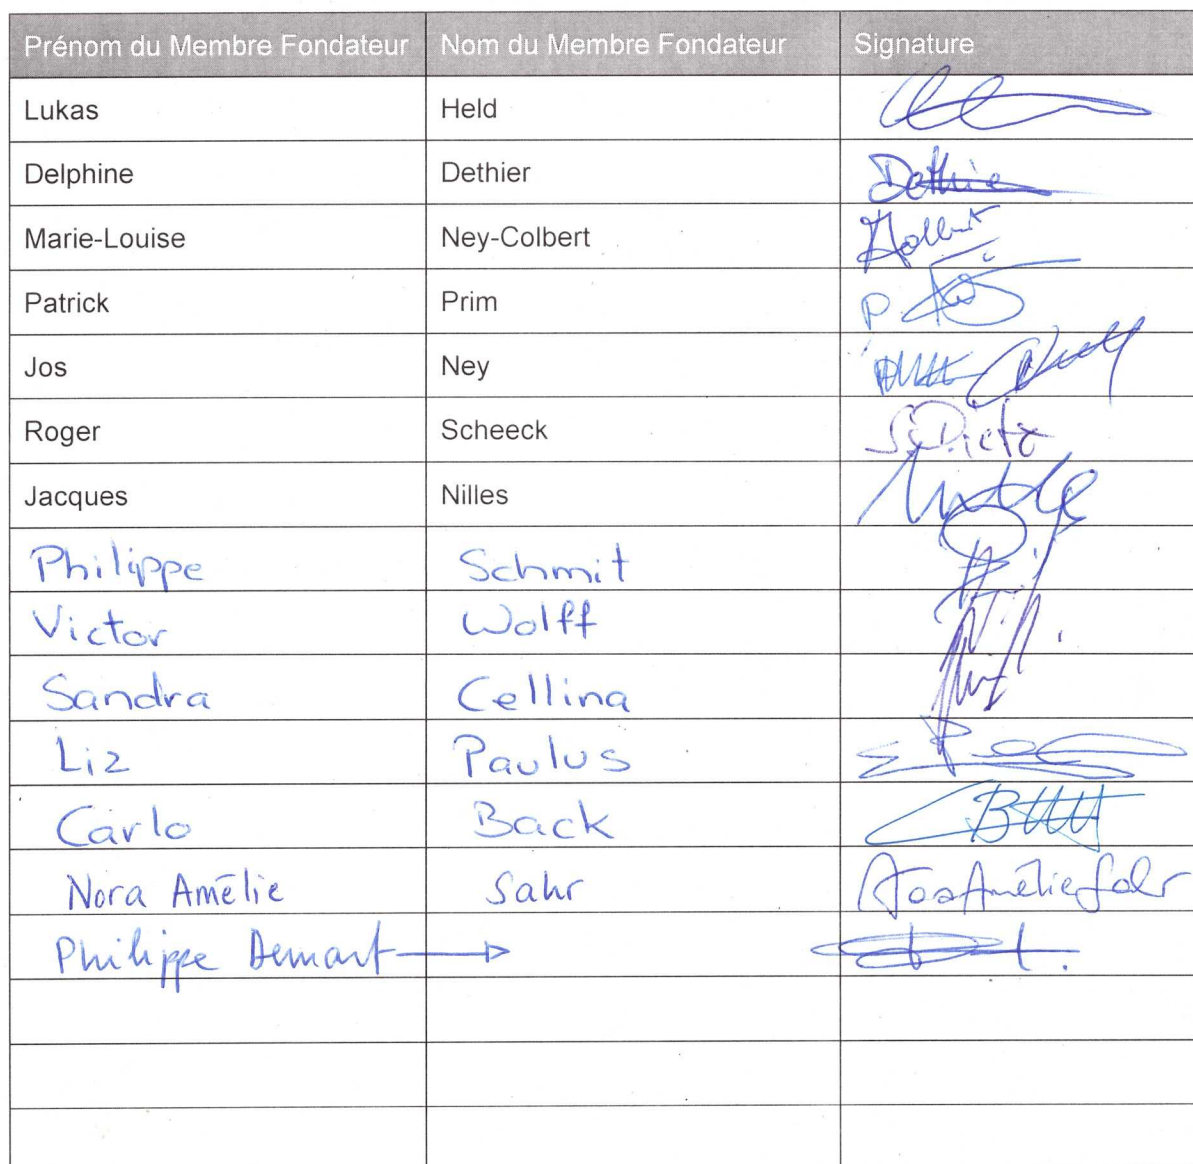 Prénom du Membre Fondateur Nom du Membre Fondateur Signature
Lukas Held
Delphine Dethier Dethier
Marie-Louise Ney-Colbert
Patrick Prim P.
Jos Ney
Roger Scheeck
Jacques Nilles
Philippe Schmit
Victor Wolff
Sandra Cellina
Liz Paulus
Carlo Back
Nora Amélie Sahr Nora Amélie Sahr
Philippe